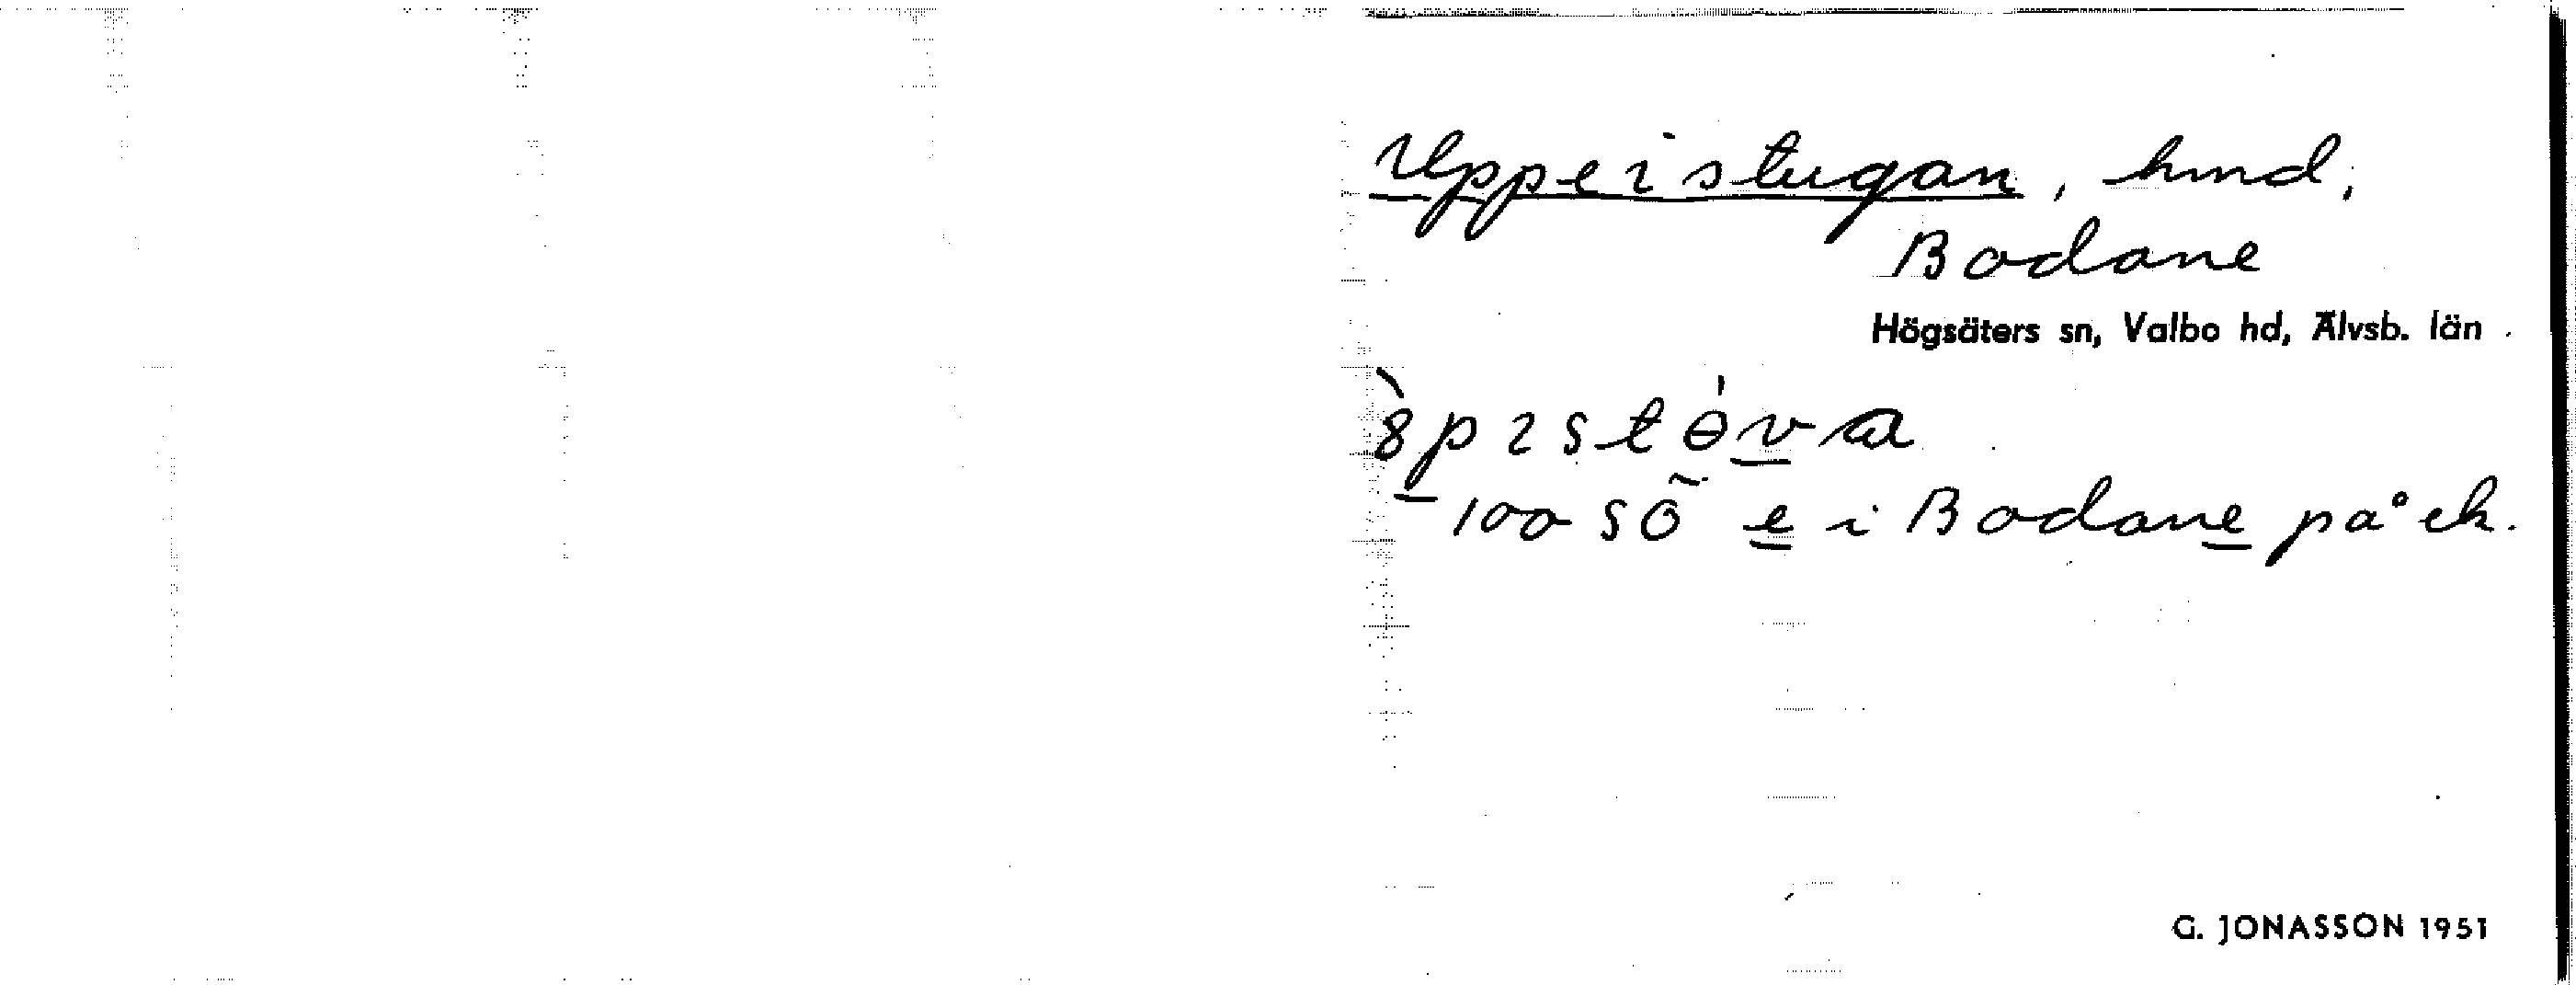 Upperstugan, hmd,
Bodane
Högsäters sn, Valbo hd, Älvsb. län
100 sö e i Bodane på ek.
G. JONASSON 1951